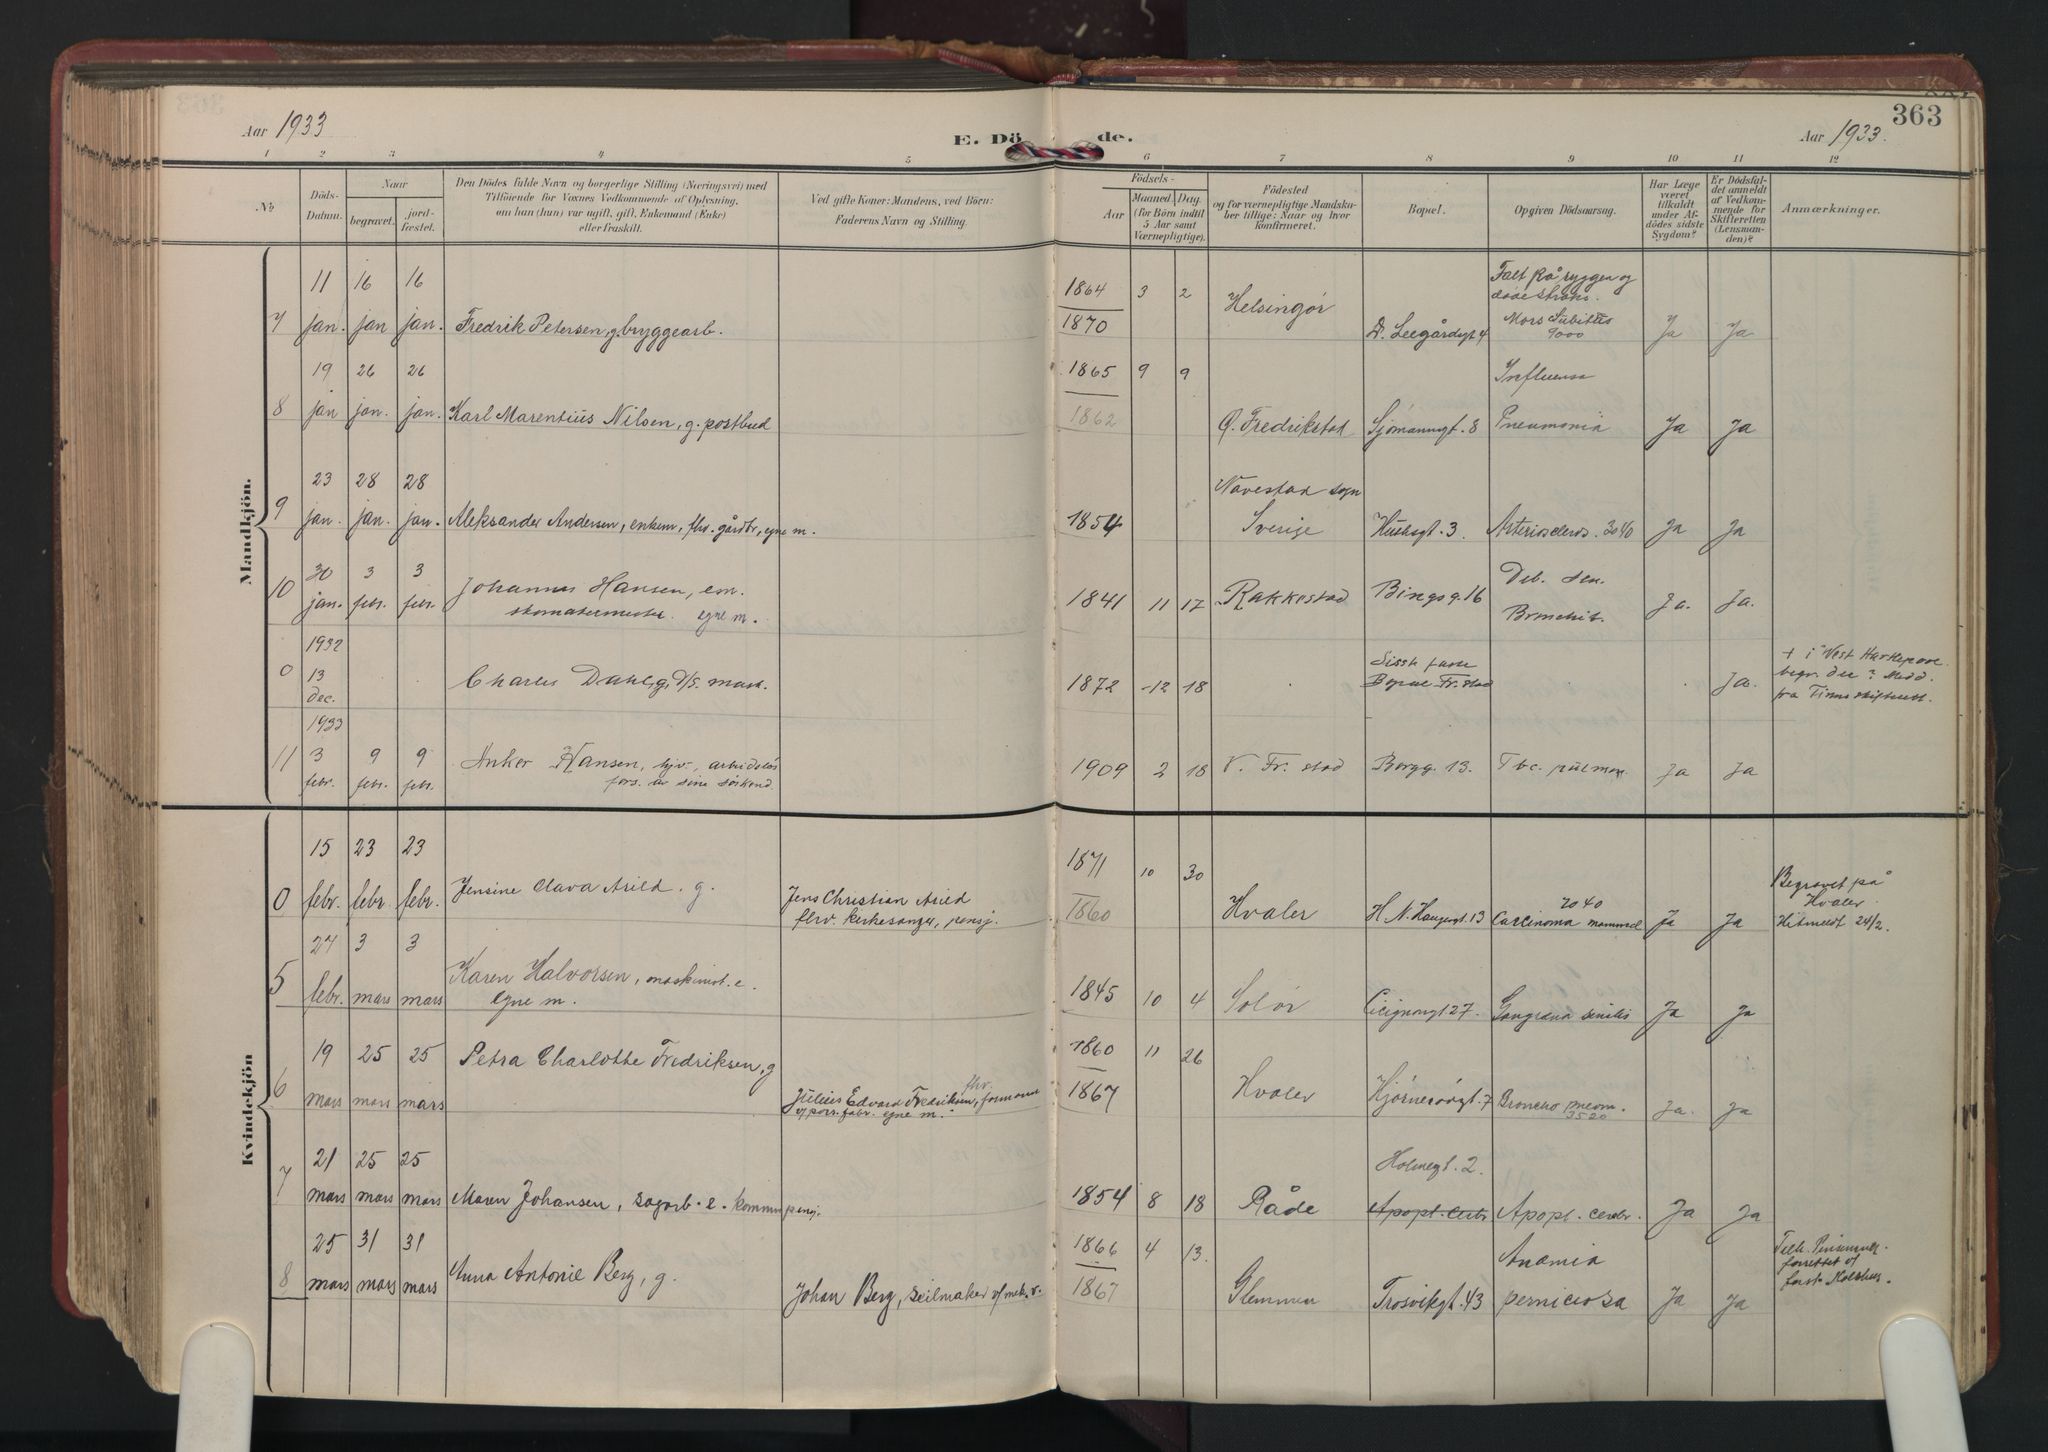 363
Aar 1933
E. Dö de.
Aar 1933.
1 2 3 4 5 6 7 8 9 10 11 12
No
Döds-Datum.
Naar
begravet.
jord-fæstet.
Den Dödes fulde Navn og borgerlige Stilling (Næringsvei) med
Tilföiende for Voxnes Vedkommende af Oplysning,
om han (hun) var ugift, gift, Enkemand (Enke)
eller fraskilt.
Ved gifte Koner: Mandens, ved Börn:
Faderens Navn og Stilling.
Födsels-
Aar
Maaned. Dag.
(for Börn indtil
5 Aar samt
Værnepligtige).
Födested
og for værnepligtige Mandsku-
ber tillige: Naar og hvor
konfirmeret.
Bopæl.
Opgiven Dödsaarsag.
Har Læge
været
tilkaldt
under Af-
dödes sidste
Sygdom?
Er Dödsfal-
det anmeldt
af Vedkom-
mende for
Skifteretten
(Lensman-
den)?
Anmærkninger.
Mandkjön.
7 11 jan. 16 jan 16 jan. Fredrik Petersen, g. bryggearb. 1864 3 2 1870 Helsingör D. Leegårdsgt 4 Falt på ryggen og
döde straks.
Mors Subitus
9000 Ja Ja
8 19 jan 26 jan. 26 jan. Karl Marentius Nilsen, g. postbud 1865 9 9 1862 Ö. Fredrikstad Sjömannsgt. 8 Influensa
Pneumonia Ja Ja
9 23 jan. 28 jan. 28 jan. Aleksander Andersen, enkem, fhv. gårdbr, egne m. 1854 Navestad sogn
Sverige 3. Arterioscleros. 3040 Ja Ja
10 30 jan. 3 febr. 3 febr. Johannes Hansen, em.
skomakermester. egne m. 1841 11 17 Rakkestad Bingsg. 16 Deb. sen.
Bronchit. Ja. Ja.
0 1932 13 dec. Charles Dahl, g, D/S. mask. 1872 12 18 Sisste faste
Bopæl Fr.stad Ja. + i Vest Hartlepool
begr. der? Medd.
fra skifterett.
1933
11 3 febr. 9 febr. 9 febr. Anker Hansen, ugv., arbeidslös
fors. av sine söskend. 1909 2 18 V. Fr.stad Borgg. 13. Tbc. pulmon. Ja Ja
Kvindekjön
0 15 febr. 23 febr. 23 febr. Jensine Clava Arild. g. Jens Christian Arild
fhv. kirkesanger, pensj. 1871 10 30 1860 Hvaler H. N. Haugesgt. 13 2040
Carcinoma mammæ Ja Ja Begravet på
Hvaler.
Hitmeldt 24/2.
5 27 febr. 3 mars 3 mars Karen Halvorsen, maskinist. e.
egne m. 1845 10 4 Solör Cicignonsgt 27. Gangræna senilis Ja Ja
6 19 mars 25 mars 25 mars Petra Charlotte Fredriksen, g Julius Edvard Fredriksen, fhv. formann
egne m. 1860 11 26 1867 Hvaler Hjörnerödgt. 7 Broncho pneum.
3520 Ja. Ja
7 21 mars 25 mars 25 mars Maren Johansen, sagarb. e. kommun pensj. 1854 8 18 Råde Holmegt. 2.
Apopl. cerebr Apopl. cerebr. Ja Ja
8 25 mars 31 mars 31 mars Anna Antonie Berg, g. Johan Berg, seilmaker v/ mek. v. 1866 4 13. 1867 Glemmen Trosvikgt. 43 Anæmia
perniciosa Ja Ja